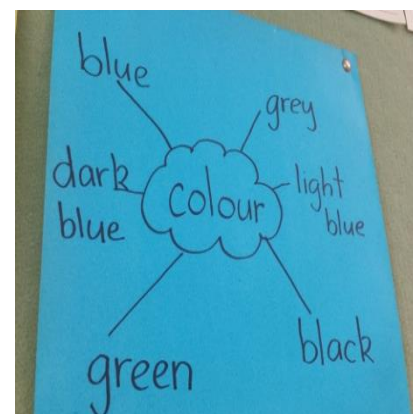 blue
grey
dark
blue
colour
light
blue
green
black